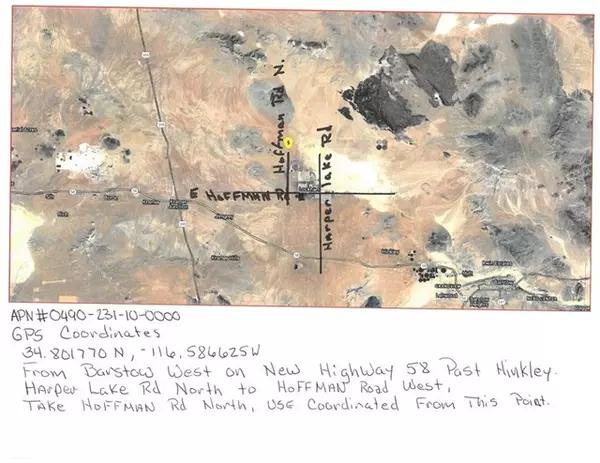 Hoffman Rd N.
Harper Lake Rd
E HOFFMAN Rd
Lockhart
Boron
Kramer
Kramer Junction
Jimgrey
Kramer Hills
Hinkley
Lenwood
Barstow
APN#0490-231-10-0000
GPS Coordinates
34.801770 N, -116.586625W
From Barstow West on New Highway 58 Past Hinkley.
HARPER LAKE Rd North to HOFFMAN Road West,
TAKE HOFFMAN Rd North, USE Coordinated From This Point.